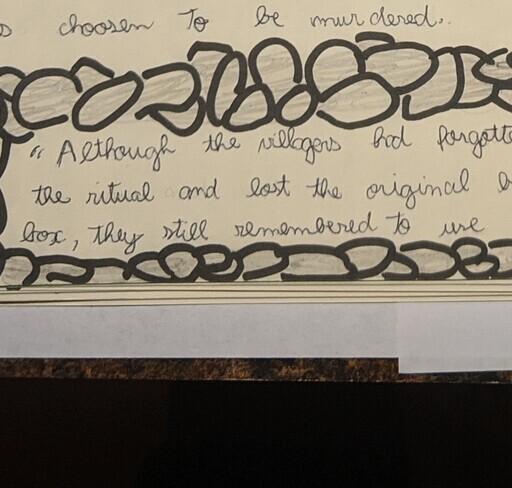 choosen to be murdered..
"Although the villagers had forgotte
the ritual and lost the original b
box, they still remembered to use